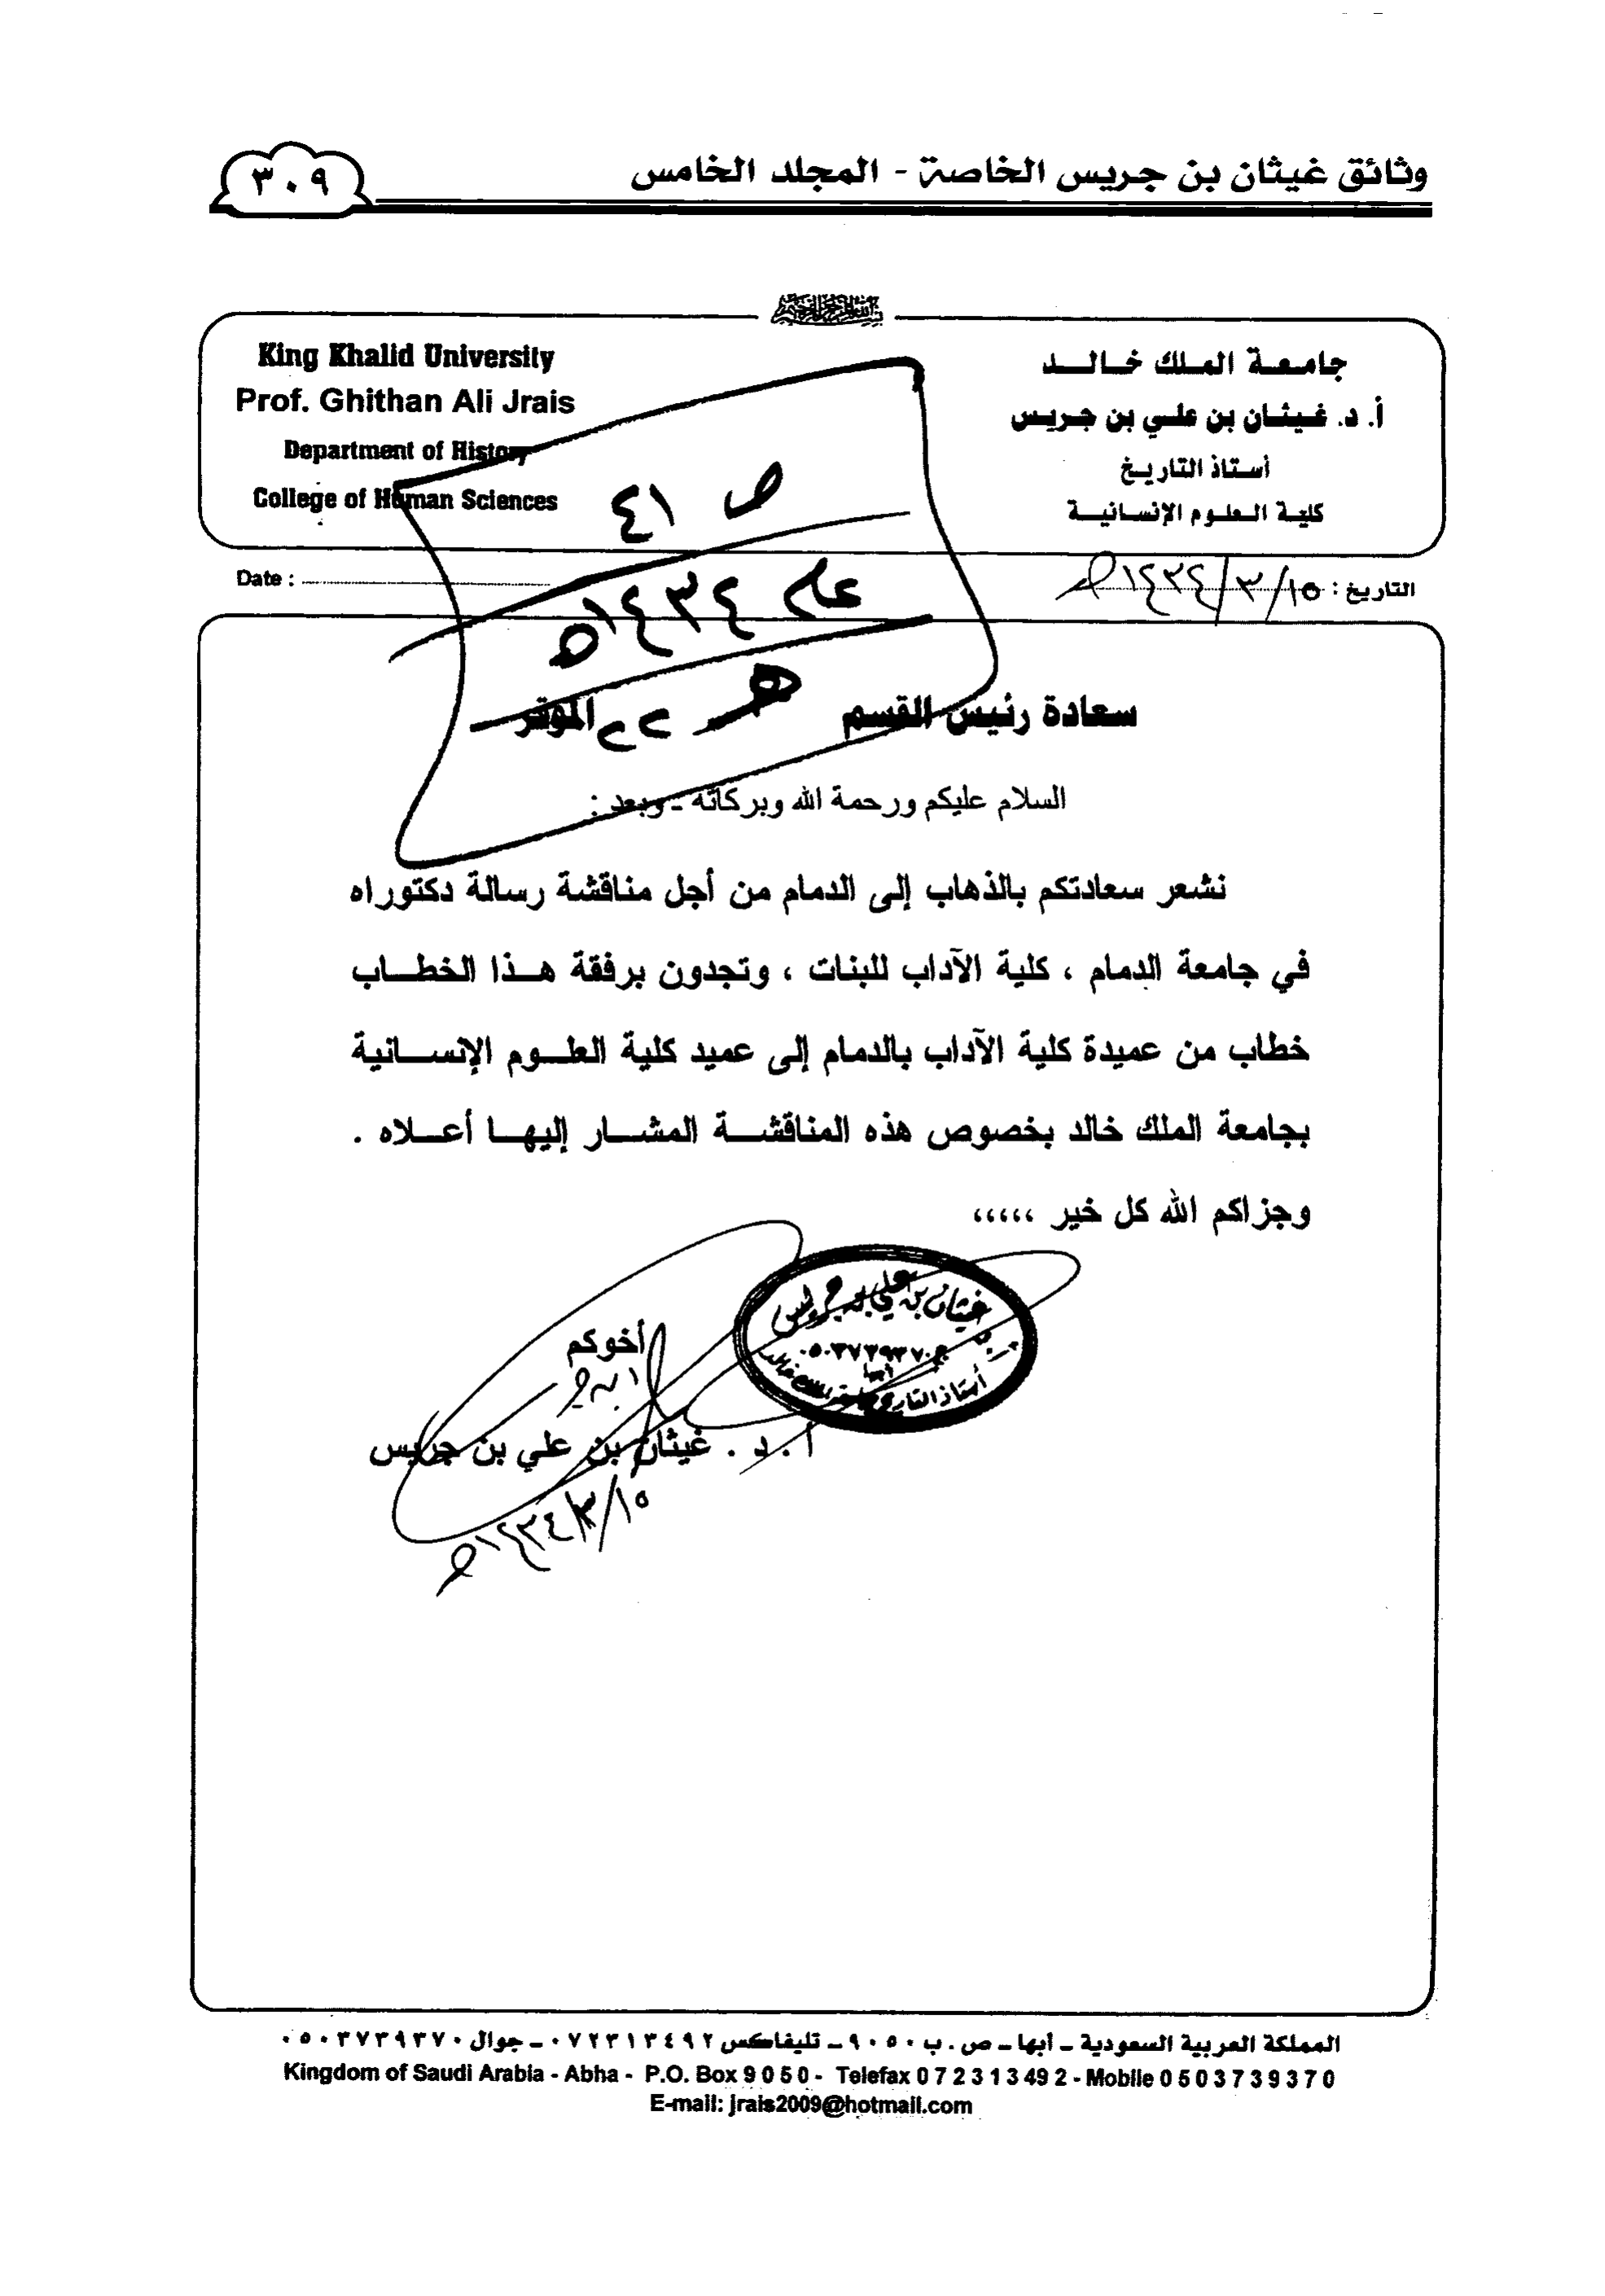 وثائق غيثان بن جريس الخاصة - المجلد الخامس
٣٠٩
جامعة الملك خالد
أ. د. غيثان بن علي بن جريس
أستاذ التاريخ
كلية العلوم الإنسانية
King Khalid University
Prof. Ghithan Ali Jrais
Department of History
College of Human Sciences
ص ٤١
عام ١٤٣٤هـ
هـ ٢٢
التاريخ : ١٥/٣/١٤٣٤هـ
Date :
سعادة رئيس القسم الموقر
السلام عليكم ورحمة الله وبركاته - وبعد :
نشعر سعادتكم بالذهاب إلى الدمام من أجل مناقشة رسالة دكتوراه
في جامعة الدمام ، كلية الآداب للبنات ، وتجدون برفقة هذا الخطاب
خطاب من عميدة كلية الآداب بالدمام إلى عميد كلية العلوم الإنسانية
بجامعة الملك خالد بخصوص هذه المناقشة المشار إليها أعلاه .
وجزاكم الله كل خير ،،،،،
غيثان بن علي بن جريس
٠٥٠٣٧٣٩٣٧٠
أبها
أستاذ التاريخ بجامعة الملك خالد
أخوكم
أ . د . غيثان بن علي بن جريس
١٥/٣/١٤٣٤هـ
المملكة العربية السعودية - أبها - ص . ب ٩٠٥٠ - تليفاكس ٠٧٢٣١٣٤٩٢ - جوال ٠٥٠٣٧٣٩٣٧٠
Kingdom of Saudi Arabia - Abha - P.O. Box 9 0 5 0 - Telefax 0 7 2 3 1 3 49 2 - Mobile 0 5 0 3 7 3 9 3 7 0
E-mail: jrais2009@hotmail.com